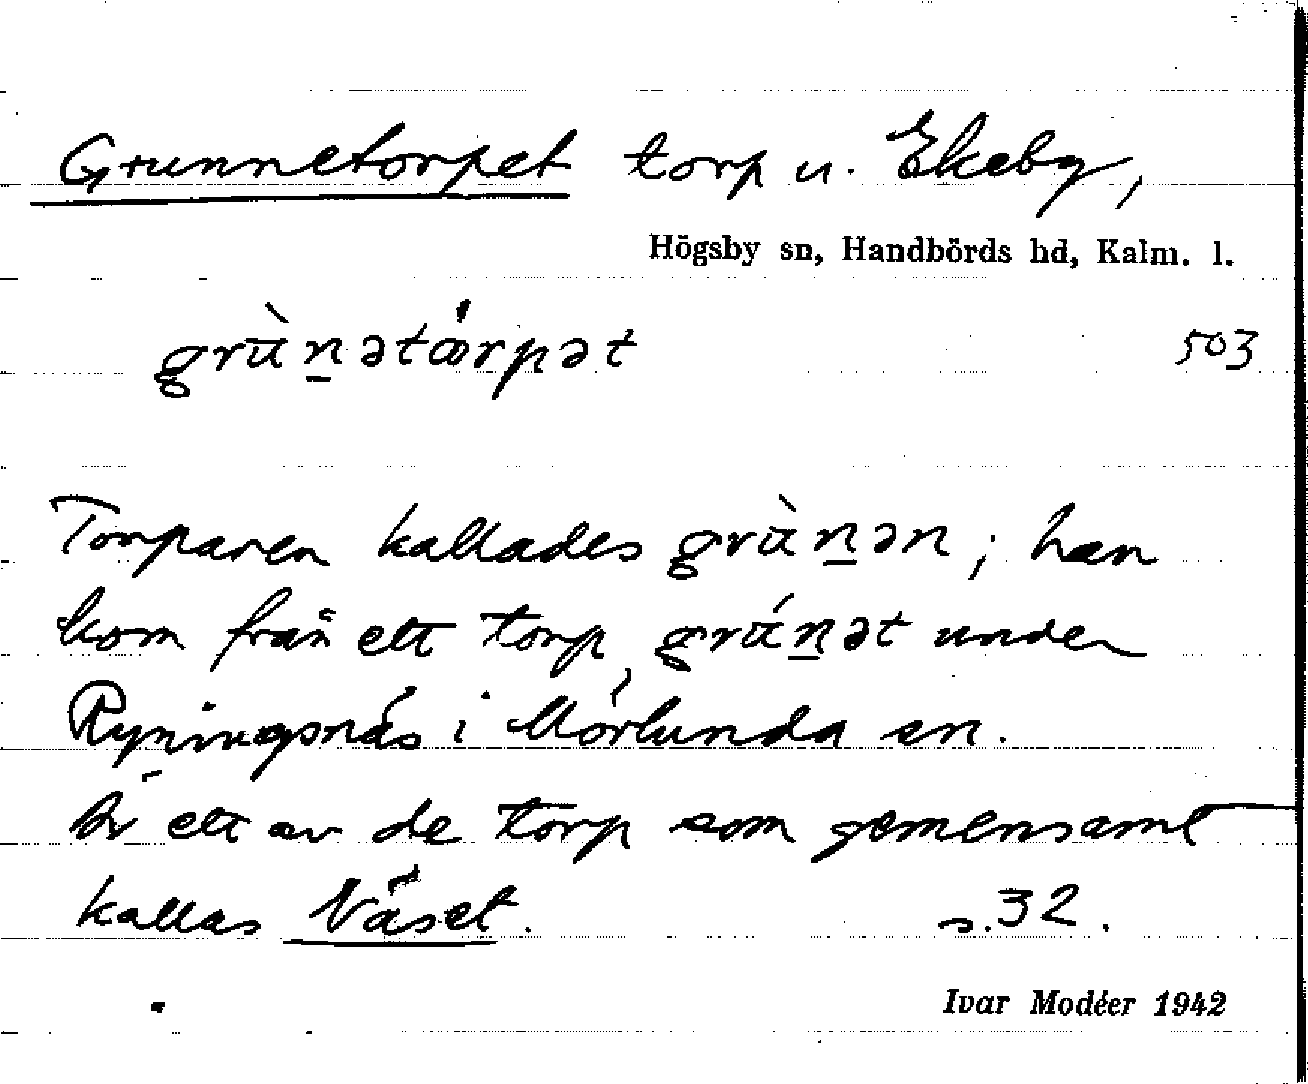 Grunnetorpet torp u. Ekeby,
Högsby sn, Handbörds hd, Kalm. l.
grùn̲ətǿrpət 503
Torparen kallades grùn̲ən; han
kom från ett torp, grún̲ət under
Ryningsnäs i Mörlunda sn.
Är ett av de torp som gemensamt
kallas Näset. s. 32.
Ivar Modéer 1942